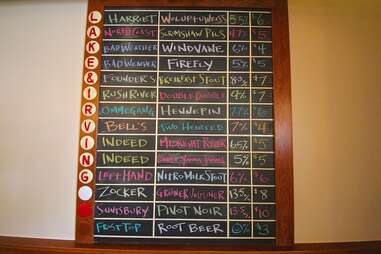 LAKE & IRVING
HARRIET WOLUPTUWEISS 5.5% $6
NORTH COAST SCRIMSHAW PILS 4.7% $5
BAD WEATHER WINDVANE 6% $4
BAD WEATHER FIREFLY 5% $5
FOUNDER'S BREAKFAST STOUT 8.3% $7
RUSH RIVER DOUBLE BUBBLE 9% $7
OMMEGANG HENNEPIN 7.7% $6
BELL'S TWO HEARTED 7% $4
INDEED MIDNIGHT RYDER 6.5% $5
INDEED 5% $5
LEFT HAND NITRO MILK STOUT 6% $6
ZOCKER GRÜNER VELTLINER 13.5% $8
PINOT NOIR $10
FROSTTOP ROOT BEER 0% $3